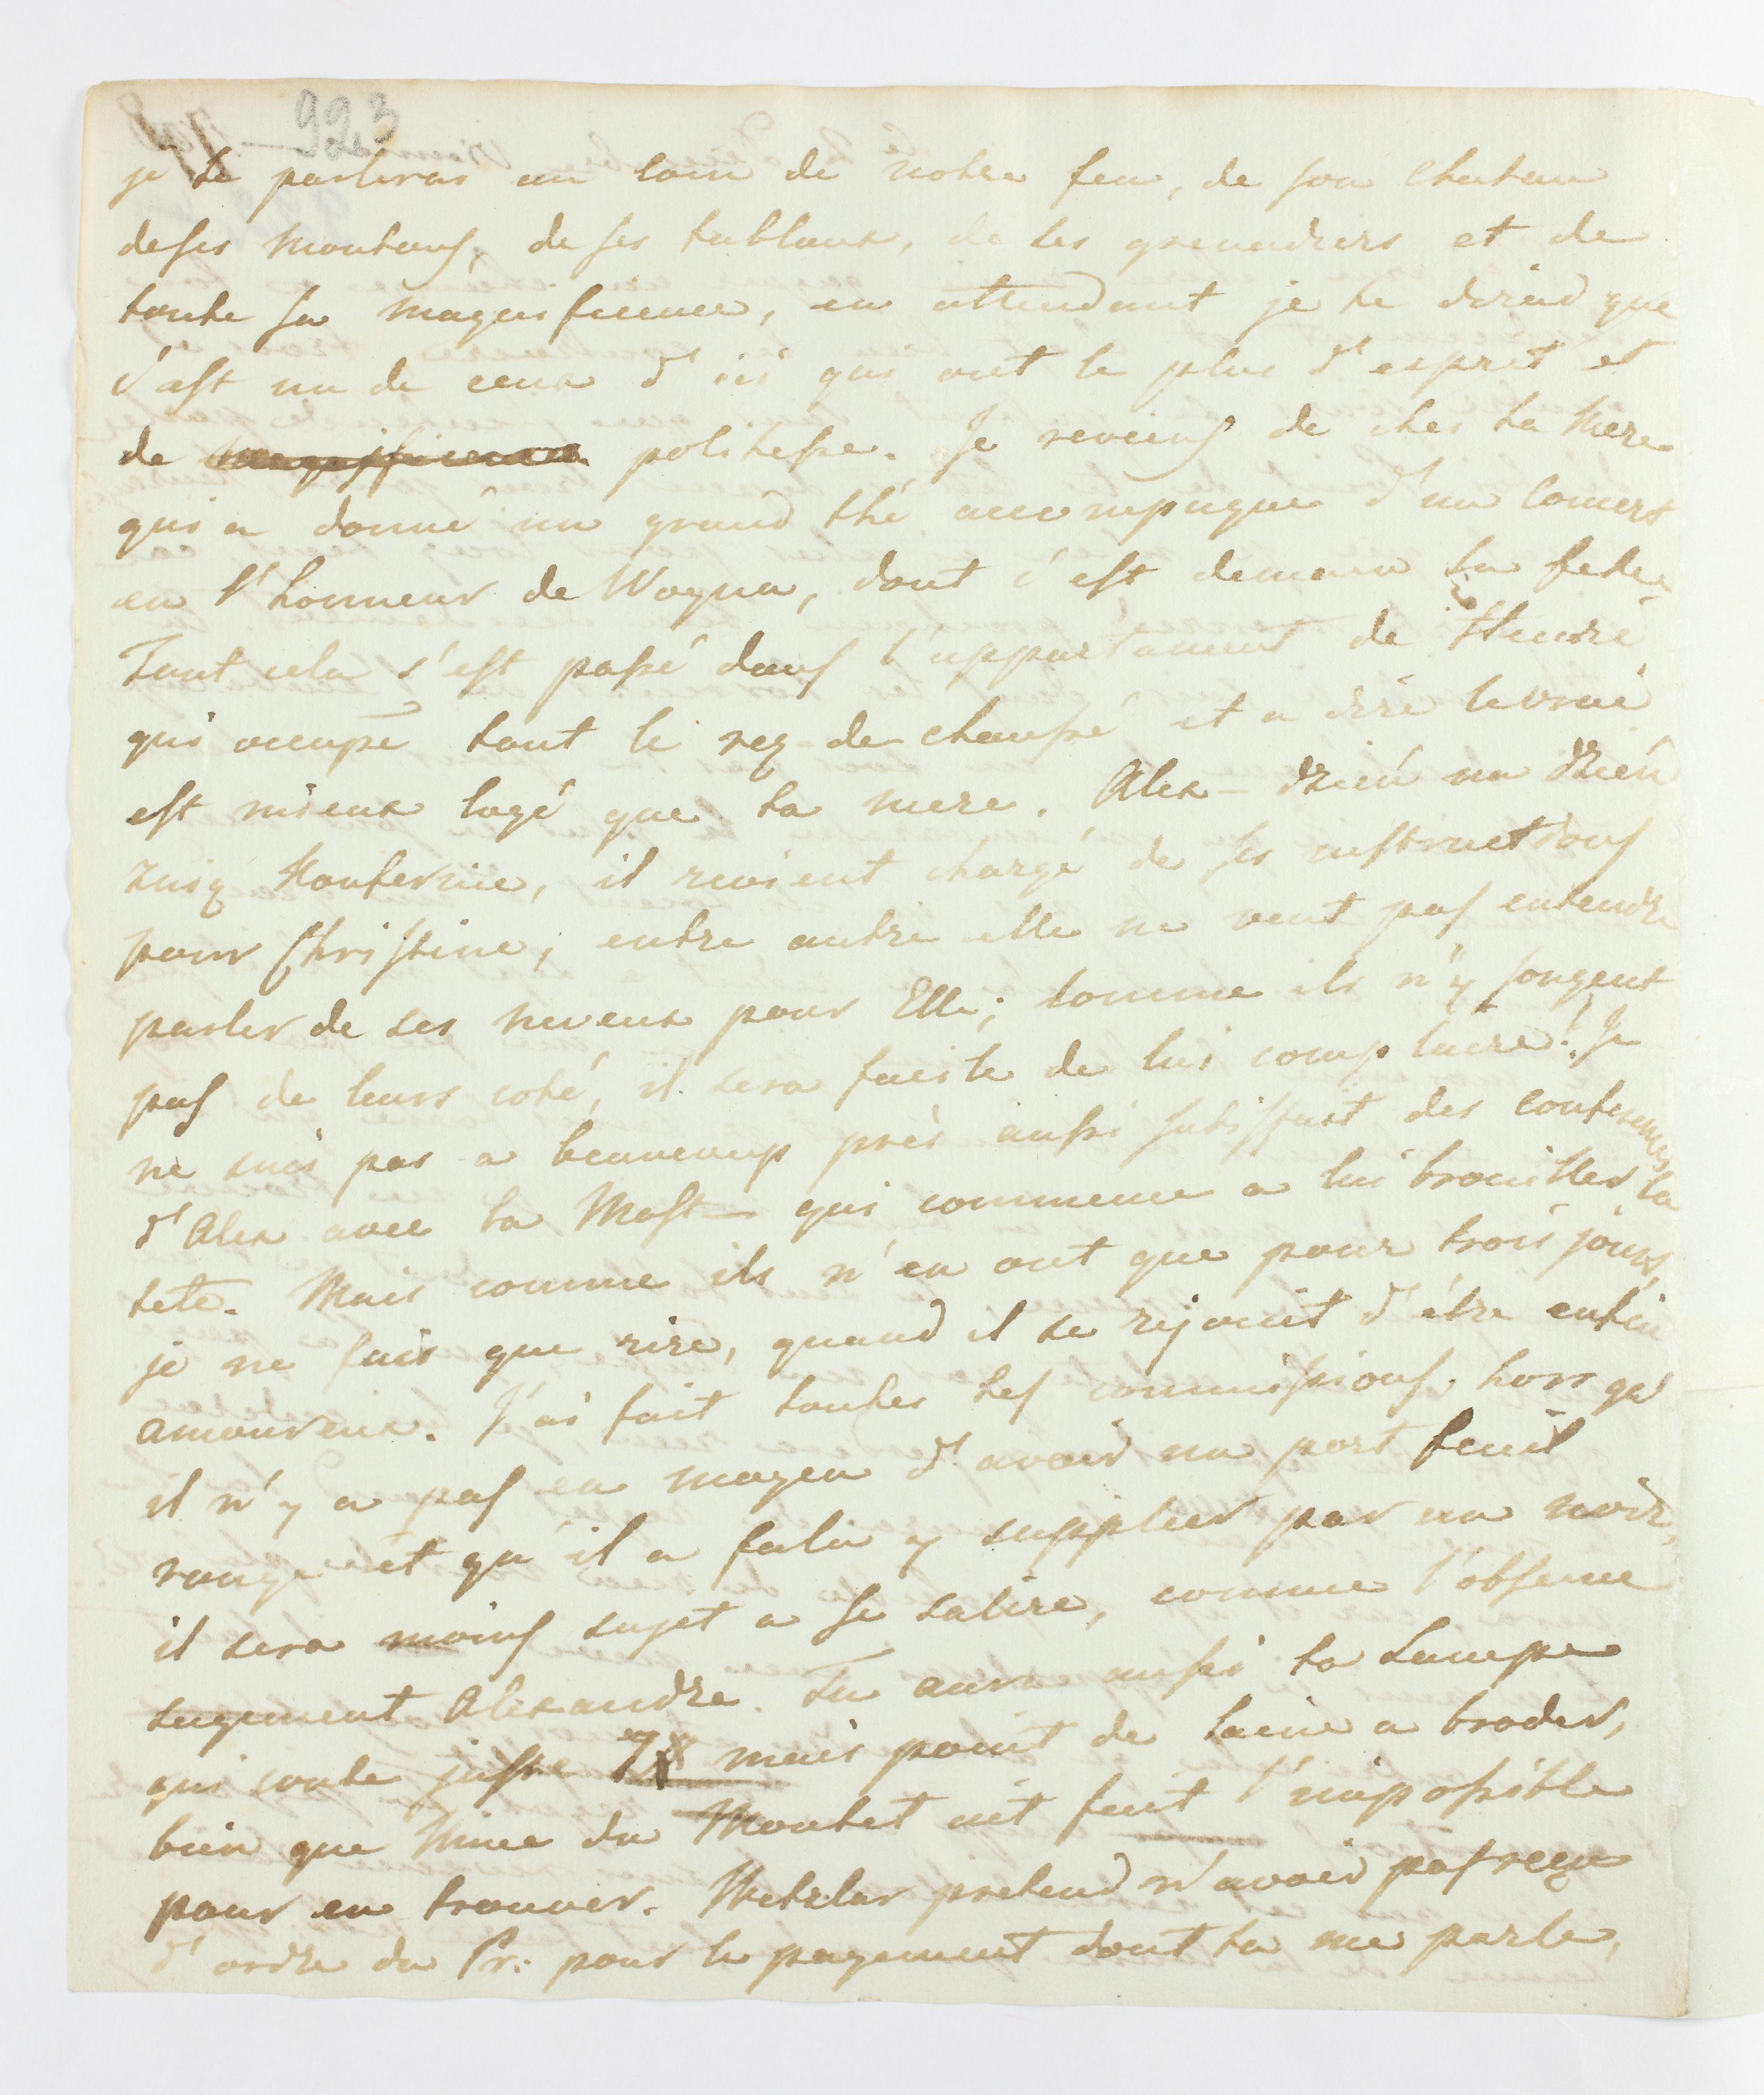 923
je te parlerai au coin de notre feu, de son chateau
de ses moutons, de ses tableaux, de ses grenadiers et de
toute sa magnificence, en attendant je te dirai que
c'est un de ceux d'ici qui ont le plus d'esprit et
de politesse. Je reviens de chez ta Mere
qui a donné un grand thé accompagne d'un concert
en l'honneur de Woyna, dont c'est demain la fete,
Tout cela s'est passé dans l'appartement de Henri
qui occupe tout le rez-de chaussé et a dire le vrai
est mieux logé que ta mere. Alex- dzień na dzień
Hauterive, il revient chargé de ses instructions
pour Christine, entre autre elle ne veut pas entendre
parler de ses neveux pour Elle; comme ils n'y songent
pas de leurs coté, il sera facile de lui complaire! Je
ne suis pas a beaucoup près aussi satisfait des
d'Alex avec la Mest- qui commence a lui brouiller la
tete. Mais comme ils n'en ont que pour trois jours,
je ne fais que rire, quand il se rejouit d'être enfin
amoureux. J'ai fait toutes tes commissions, hors qu'
il n'y a pas eu moyen d'avoir un port feuil
rouge et qu'il a falu y suppleer par un noir,
il sera moins sujet a se salire, comme l'observe
sagement Alexandre. Tu auras aussi ta Lampe
qui coute juste mais point de laine a broder,
bien que Mme du Montet ait fait l'impossible
pour en trouver. Wetzlar pretend n'avoir pas reçu
d'ordre du Pr: pour le payement dont tu me parle,